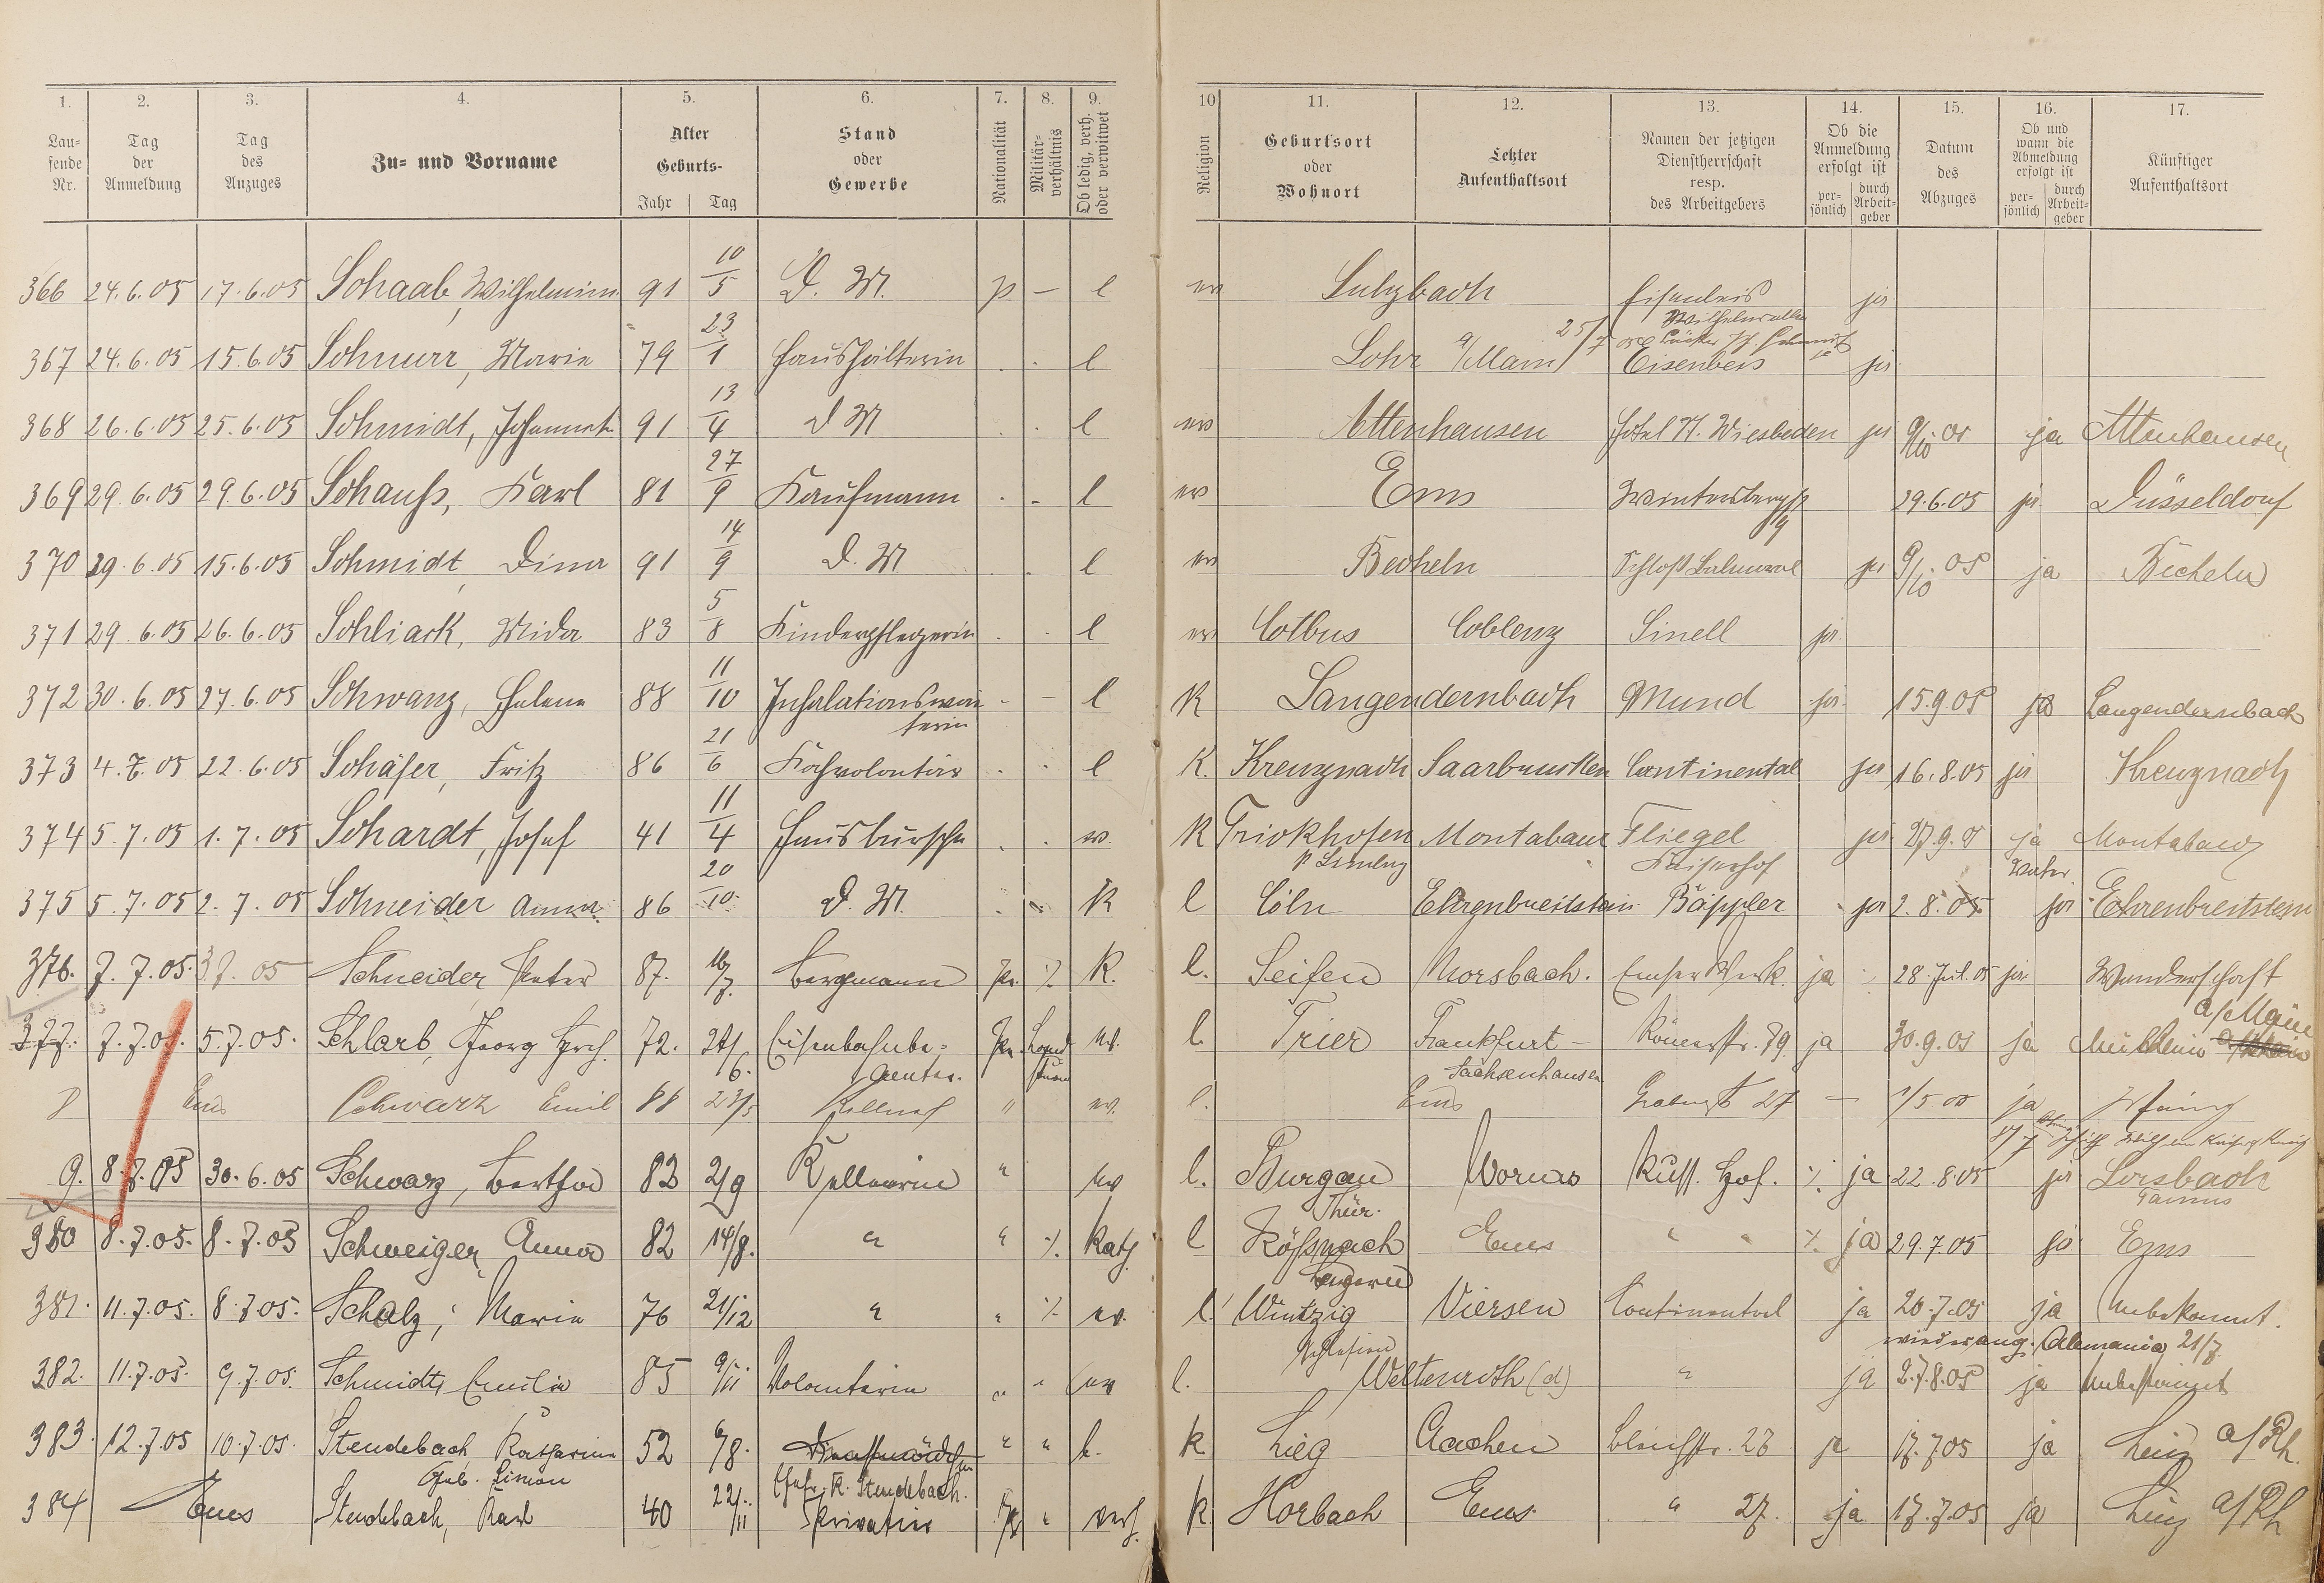 1. 2. 3. 4. 5. 6. 7. 8. 9. 10 11. 12. 13. 14. 15. 16. 17.
Lau-
fende
Nr.
Tag
der
Anmeldung
Tag
des
Anzuges
Zu- und Vorname
Alter
Geburts-
Jahr Tag
Stand
oder
Gewerbe
Nationalität
Militär-
verhältnis
Ob ledig, verh.
oder verwitwet
Religion
Geburtsort
oder
Wohnort
Letzter
Aufenthaltsort
Namen der jetzigen
Dienstherrschaft
resp.
des Arbeitgebers
Ob die
Anmeldung
erfolgt ist
per-
sönlich
durch
Arbeit-
geber
Datum
des
Abzuges
Ob und
wann die
Abmeldung
erfolgt ist
per-
sönlich
durch
Arbeit-
geber
Künftiger
Aufenthaltsort
366 24.6.05 17.6.05 Schaab, Wilhelmine 91 10/5 D. M. p — l ev Sulzbach Eisenbeis ja
367 24.6.05 15.6.05 Schnurr, Marie 79 23/1 Haushälterin l Lohr a/Main 25/7 Eisenbeis ja
368 26.6.05 25.6.05 Schmidt, Johannet 91 13/4 D M l ev Attenhausen Hotel St. Wiesbaden ja 9/10 05 ja Attenhausen
369 29.6.05 29.6.05 Schauß, Karl 81 27/9 Kaufmann l ev Ems Wintersberg 29.6.05 ja Düsseldorf
370 29.6.05 15.6.05 Schmidt, Dina 91 14/9 D. M. l ev Becheln Schloß Balmoral ja 9/10 05 ja Becheln
371 29.6.05 26.6.05 Schliack, Mida 83 5/8 Kinderpflegerin l ev Cotbus Coblenz Sinell ja
372 30.6.05 27.6.05 Schwanz, Helene 88 11/10 Inhalationswär
terin — l K Langendernbach Mund ja 15.9.05 ja Langendernbach
373 4.7.05 22.6.05 Schäfer, Fritz 86 21/6 Kochvolontär l K. Kreuznach Saarbrücken Continental ja 16.8.05 ja Kreuznach
374 5.7.05 1.7.05 Schardt, Josef 41 11/4 Hausbursche w. K Frickhofen Montabaur Fliegel ja 27.9.05 ja Montabaur
Kaiserhof
375 5.7.05 2.7.05 Schneider Anna 86 20/10 D. M. K l Cöln Ehrenbreitstein Bäppler ja 2.8.05 ja Ehrenbreitstein
376. 7.7.05. 3.7.05 Schneider Peter 87. Bergmann Pr. ·/. K. l. Seifen Morsbach. Emser Werk. ja 28. Jul. 05 ja Wanderschaft
377. 7.7.05. 5.7.05. Schlarb, Georg Hrch. 72. 24/6. Eisenbahnbe-
amter. Pr. Land
sturm ev. l. Trier Frankfurt-
Sachsenhausen Römerstr. 79 ja 30.9.05 ja Mülheim a/Main
8 Ems Schwarz Emil 88 23/5 Kellner " ev. l. Ems Grabenstr 27 — 1/5 05 ja
9. 8.7.05 30.6.05 Schwarz, Bertha 82 2/9 Kellnerin " ev l. Burgau
Thür. Worms Russ. Hof. ·/. ja 22.8.05 ja Lorsbach
Taunus
380 8.7.05. 8.7.05 Schweiger, Anna 82 14/8. " " ·/. Kath l Rößnach
Bayern Ems " " ·/. ja 29.7.05 ja Ems
381. 11.7.05. 8.7.05. Scholz, Marie 76 21/12 " " ·/. ev. l. Wintzig
Schlesien Viersen Continental ja 20.7.05 ja Unbekannt.
wiederang. Alemania 21/7
382. 11.7.05. 9.7.05. Schmidt, Emilie 85 9/11 Volontärin " " ev l. Weltenroth (d) " ja 27.8.05 ja Unbestimmt
383. 12.7.05 10.7.05. Stendebach, Katharina
Geb. Simon 52 6/8. Dienstmädchen
Ehefr. K. Stendebach. " " h. k. Lieg Aachen Bleichstr. 28 ja 17.7.05 ja Linz a/Rh.
384 Ems Stendebach, Karl 40 22/11 Privatier Pr " verh. k. Horbach Ems " 27. ja 17.7.05 ja Linz a/Rh